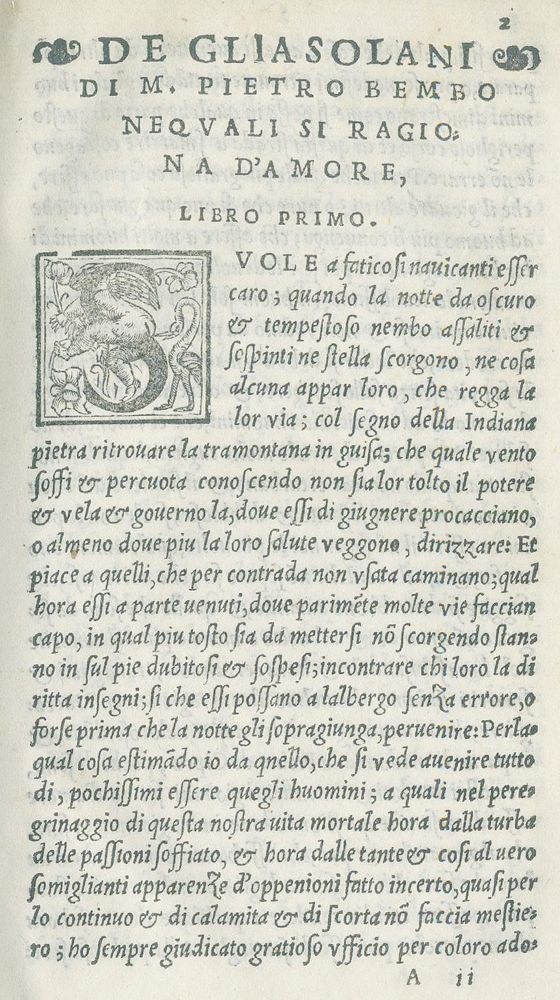 2
DE GLI ASOLANI
DI M. PIETRO BEMBO
NEQVALI SI RAGIO-
NA D'AMORE,
LIBRO PRIMO.
SVOLE a faticosi nauicanti esser
caro; quando la notte da oscuro
& tempestoso nembo assaliti &
sospinti ne stella scorgono, ne cosa
alcuna appar loro, che regga la
lor via; col segno della Indiana
pietra ritrouare la tramontana in guisa; che quale vento
soffi & percuota conoscendo non sia lor tolto il potere
& vela & gouerno la, doue essi di giugnere procacciano,
o almeno doue piu la loro salute veggono, dirizzare: Et
piace a quelli, che per contrada non vsata caminano; qual
hora essi a parte uenuti, doue parimẽte molte vie faccian
capo, in qual piu tosto sia da mettersi nõ scorgendo stan-
no in sul pie dubitosi & sospesi; incontrare chi loro la di
ritta insegni; si che essi possano a lalbergo senza errore, o
forse prima che la notte gli sopragiunga, peruenire: Perla-
qual cosa estimãdo io da qnello, che si vede auenire tutto
di, pochissimi essere quegli huomini; a quali nel pere-
grinaggio di questa nostra uita mortale hora dalla turba
delle passioni soffiato, & hora dalle tante & cosi al uero
somiglianti apparenze d'oppenioni fatto incerto, quasi per
lo continuo & di calamita & di scorta nõ faccia mestie-
ro; ho sempre giudicato gratioso vfficio per coloro ado-
A ii